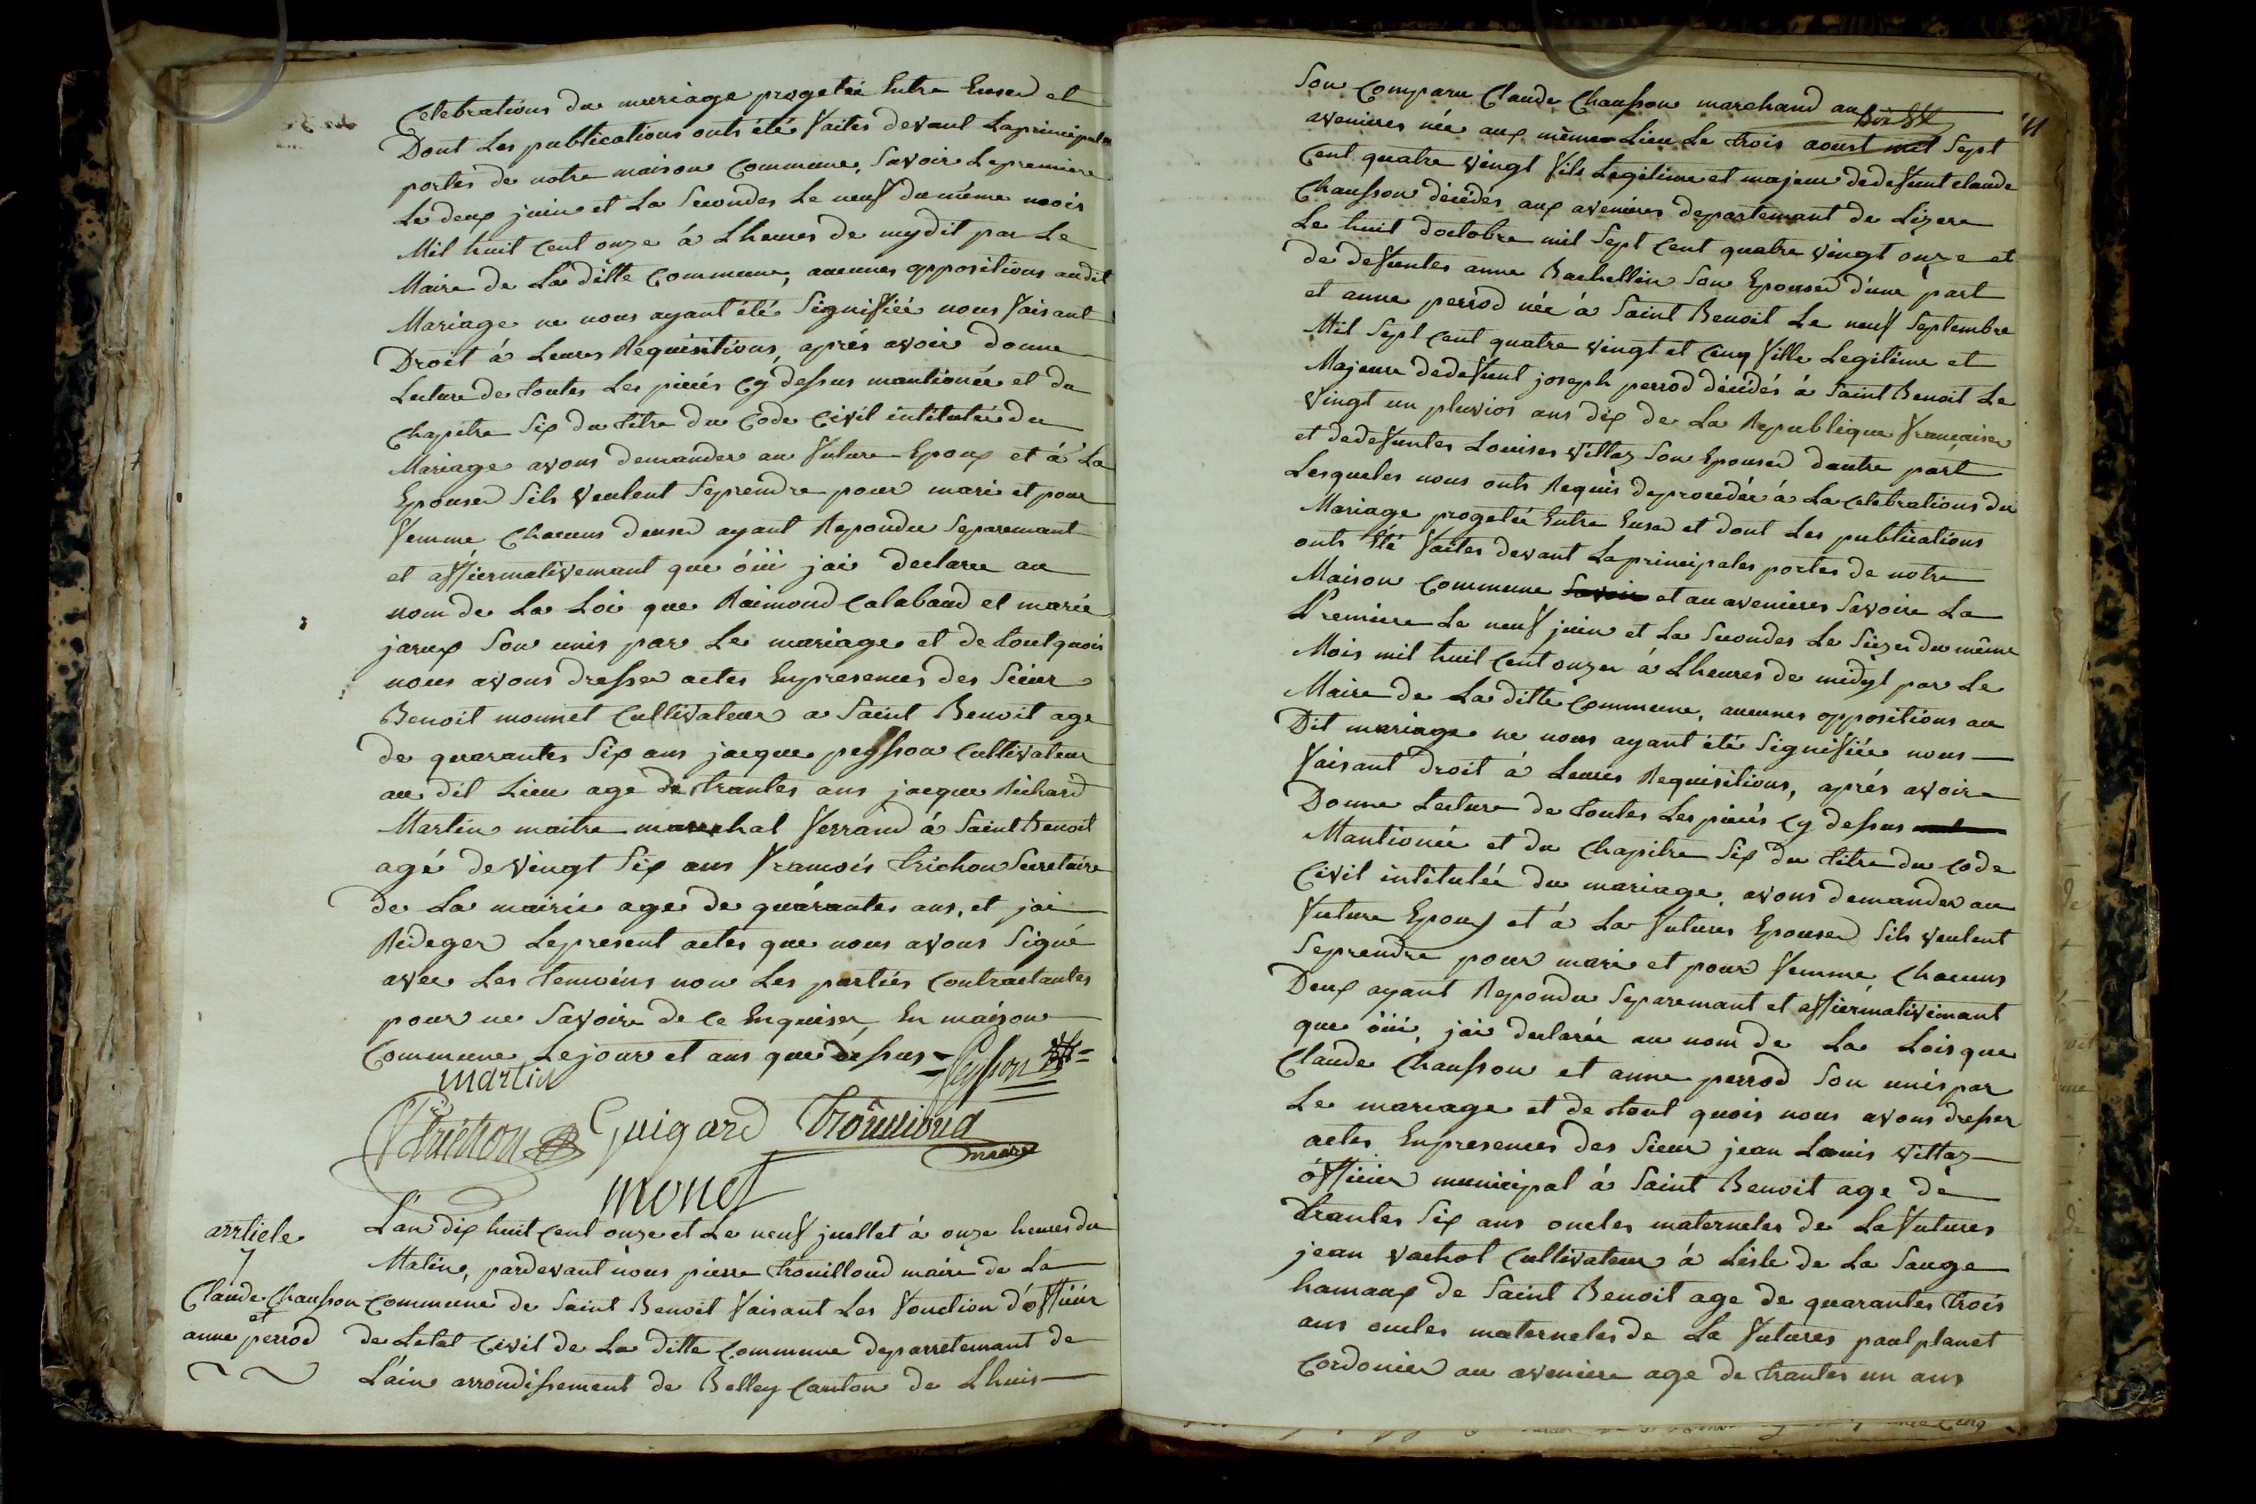 Celebrations du mariage progetée Entre Eused et
Dont Les publications onts été Vaites devant Laprincipales
portes de notre maison Commune, Savoir Lepremiere
Le deux juin et La Secondes Le neuf du même mois
Mil huit Cent onze á Lheures de mydit par Le
Maire de La ditte Commune, aucunes oppositions audit
Mariage ne nous ayant été Signifiée nous Vaisant
Droit á Leures Requisitions, aprés avoir donne
Lecture de toutes Les piecés Cy dessus mantionée et du
Chapitre Six du titre du Code Civil intitutée du
Mariage avons demander au Future Epoux et á La
Epoused Sils Veulent Seprendre pour mari et pour
Vemme Chacuns deused ayant Repondu Separemant
et affiermativemant que öüi jai declare au
nom de La Loi que Raimond Calaband et marie
jaroux Son unis par Le mariage et de toutquois
nous avons dresser actes Enpresences des Sieur
Benoit monnet Cultivateur a Saint Benoit age
de quarantes Six ans jacque peysson Cultivateur
au dit Lieu age de trantes ans jacque Richard
Martin maitre marechal Ferrand á Saint Benoit
agé de Vingt Six ans Francois trichon Secretaire
de La mairie age de quarantes ans, et jai
Rédeger Lepresent actes que nous avons Signé
avec Les temoins non Les partiés Contractantes
pour ne Savoire de Ce Enquiser En maison
Commune Lejour et ans que dessus =
Peysson
martin
Trichon Guigard Trouilloud
maire
monet
arrticle
7
Claude Chausson
et
anne perrod
L'an dix huit Cent onze et Le neuf juellet á onze heures du
Matin, pardevant nous pierre trouilloud maire de La
Commune de Saint Benoit Vaisant Les Fonction d'officier
de Letat Civil de La ditte Commune deparretemant de
L'ain arrondissement de Belley Canton de Lhuis
Son Comparu Claude Chausson marchand au
avenieres née aux même Lieu Le trois aoust mil Sept
Cent quatre Vingt Fils Legitime et majeur dedefunt claude
Chausson décédés aux avenieres departemant de Lizere
Le huit doctobre mil Sept Cent quatre Vingt onze et
de defuntes anne Bachellin Son Epoused d'une part
et anne perrod née á Saint Benoit Le neuf Septembre
Mil Sept Cent quatre Vingt et Cinq Fille Legitime et
Majeure dedefunt joseph perrod décédés á Saint Benoit Le
Vingt un pluvios ans dix de La Republique Françaises
et dedefuntes Louises Villaz Son Epoused dautre part
Lesqueles nous onts Requis deprocedée á La celebrations du
Mariage progetée Entre Eused et dont Les publications
onts Eté Faites devant Laprincipales portes de notre
Maison Commune Savoir et au avenieres Savoire La
Premiere Le neuf juin et La Secondes Le Sieze du même
Mois mil huit Cent onzes á Lheures de midyt par Le
Maire de La ditte Commune, aucunes oppositions au
Dit mariage ne nous ayant été Signifiée nous
Vaisant droit á Leurés Requisitions, aprés avoire
Donne Lecture de toutes Les piecés Cy dessus
Mantionée et du Chapitre Six du titre du Code
Civil intitutée du mariage, avons demander au
Future Epoux et á La Futures Epoused Sils Veulent
Seprendre pour mari et pour Vemme Chacuns
Deux ayant Repondu Separemant et affiermativemant
que öüi, jai declarée au nom de La Lois que
Claude Chausson et anne perrod Son unis par
Le mareage et de tout quois nous avons dresser
actes Enpresences des Sieur jean Louis Villaz
officier municipal á Saint Benoit age de
trantes Six ans oncles materneles de La Futures
jean Vachot Cultivateur á Lisle de La Sauge
hamaux de Saint Benoit age de quarantes trois
ans oncles materneles de La Futures paul planet
Cordonier au aveniere age de trantes un ans